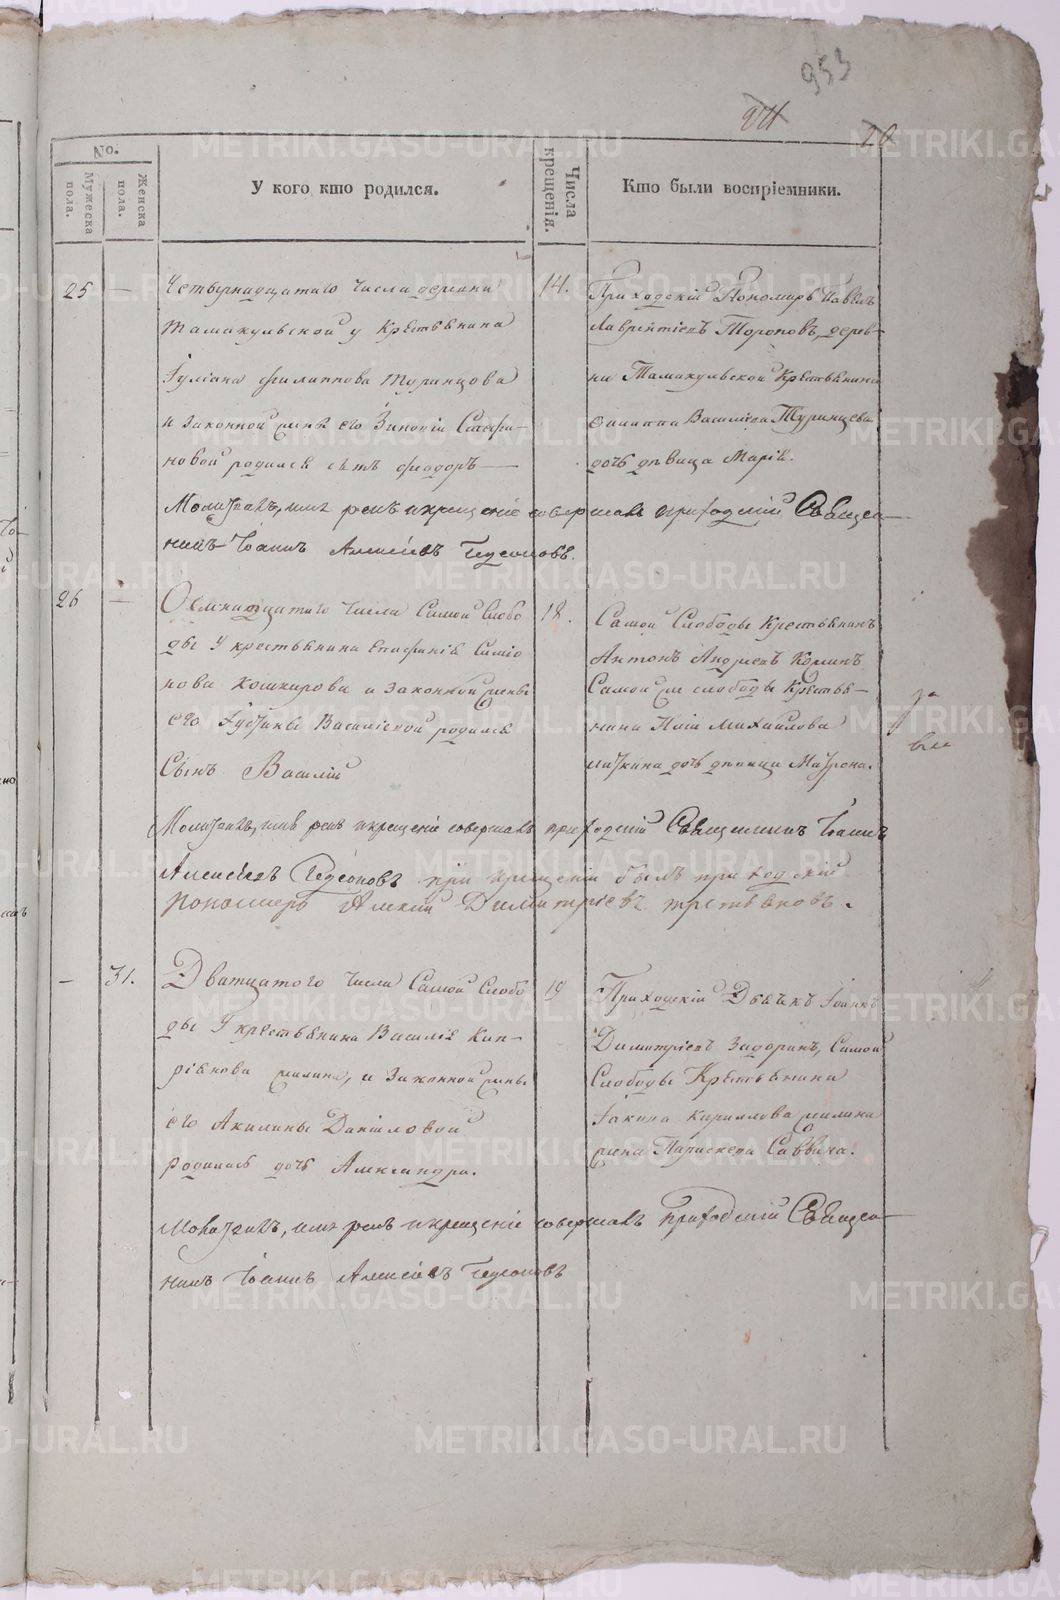 953
No.
Мужеска пола.
Женска пола.
У кого кто родился.
Числа крещенія.
Кто были воспріемники.
25 — Четырнадцатаго числа деревни
Тамакульской у Крестьянина
Іуліана Филиппова Туринцова
и законной жены его Зиновіи Стефа-
новой родился сынъ Феодоръ —
14.
Приходскій Пономарь Павелъ
Лаврентіевъ Тороповъ, дерев-
ни Тамакульской Крестьянина
Филиппа Василіева Туринцева
дочь дѣвица Марія.
Молитвовалъ, имя рекъ и крещеніе совершалъ приходскій Священ-
никъ Іоаннъ Алексіевъ Гедеоновъ.
26 — Осмнадцатаго числа Самой Слобо
ды у крестьянина Епифанія Симіо
нова Кошкарова и законной жены
его Іустины Василіевой родился
Сынъ Василій
18.
Самой Слободы Крестьянинъ
Антонъ Андреевъ
Самой же слободы Крестья-
нина Михайлова
дочь дѣвица Матрона.
Молитвовалъ, имя рекъ и крещеніе совершалъ приходскій Священникъ Іоаннъ
Алексіевъ Гедеоновъ при крещеніи былъ приходскій
пономарь Алексій Димитріевъ Третьяковъ.
— 31. Дватцатого числа Самой Слобо
ды У крестьянина Василія Кип-
ріянова, и Законной жены
его Акилины Даніиловой
родилась дочь Александра.
19
Приходскій Дьячекъ Іоаннъ
Димитріевъ Задоринъ, Самой
Слободы Крестьянина
Іакова Кириллова
жена Параскева Саввина.
Молитвовалъ, имя рекъ и крещеніе совершалъ приходскій Священ-
никъ Іоаннъ Алексіевъ Гедеоновъ
METRIKI.GASO-URAL.RU